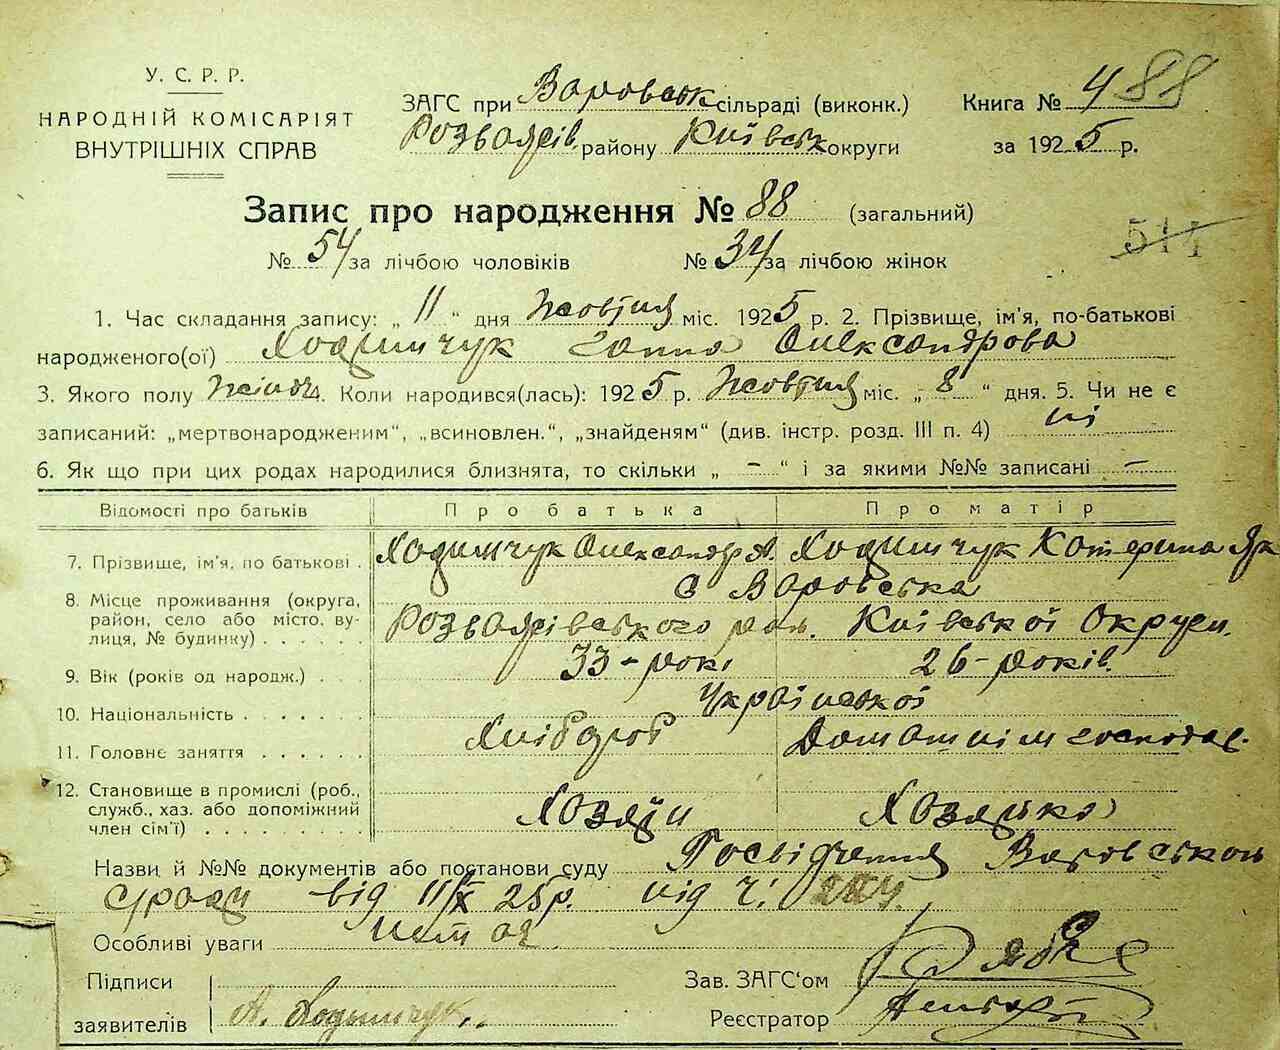 У. С. Р. Р.
НАРОДНІЙ КОМІСАРІЯТ
ВНУТРІШНІХ СПРАВ
ЗАГС при Варовськ сільраді (виконк.)
Розважів. району Київськ округи
Книга № 4 88
за 1925 р.
Запис про народження № 88 (загальний)
№ 54 за лічбою чоловіків № 34 за лічбою жінок
511
1. Час складання запису: „ 11 “ дня Жовтня міс. 1925 р. 2. Прізвище, ім'я, по-батькові
народженого(ої) Ходимчук Ганна Олександрова
3. Якого полу Жіноч. Коли народився(лась): 1925 р. Жовтня міс. „ 8 “ дня. 5. Чи не є
записаний: „мертвонародженим“, „всиновлен.“, „знайденям“ (див. інстр. розд. III п. 4) ні
6. Як що при цих родах народилися близнята, то скільки „ – “ і за якими №№ записані –
Відомості про батьків Про батька Про матір
7. Прізвище, ім'я, по батькові . Ходимчук Олександр А. Ходимчук Катерина Як
8. Місце проживання (округа, район, село або місто, вулиця, № будинку) . . . . . с Варовська
Розважівського рай. Київської Округи.
9. Вік (років од народж.) . . 33-рокі 26-років.
10. Національність . . . . . . . Української
11. Головне заняття . . . . . . Хлібороб Домашнім господар.
12. Становище в промислі (роб., служб., хаз. або допоміжний член сім'ї) . . . . . . . . Хозяїн Хозяйка
Назви й №№ документів або постанови суду Посвідчення Варовської
с/ради від 11/X 25р. під ч.
Особливі уваги Немає
Підписи
заявителів А. Ходымчук.
Зав. ЗАГС'ом
Реєстратор